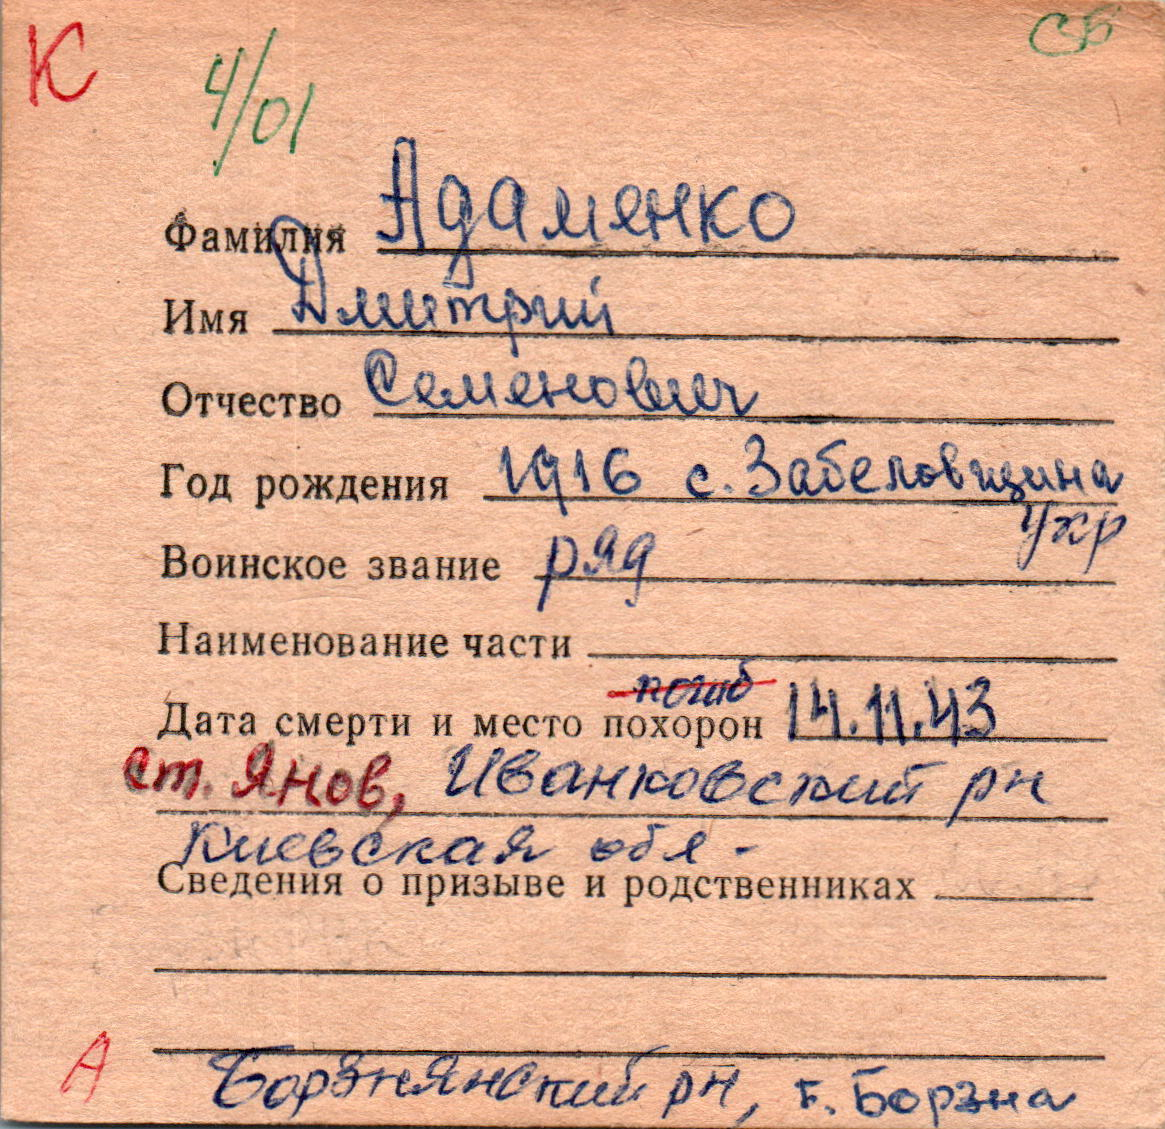 К
4/01
СБ
Фамилия Адаменко
Имя Дмитрий
Отчество Семенович
Год рождения 1916 с. Забеловщина
Укр
Воинское звание ряд
Наименование части
погиб
Дата смерти и место похорон 14.11.43
ст. Янов, Иванковский рн
Киевская обл -
Сведения о призыве и родственниках
А
Борзнянский рн, г. Борзна